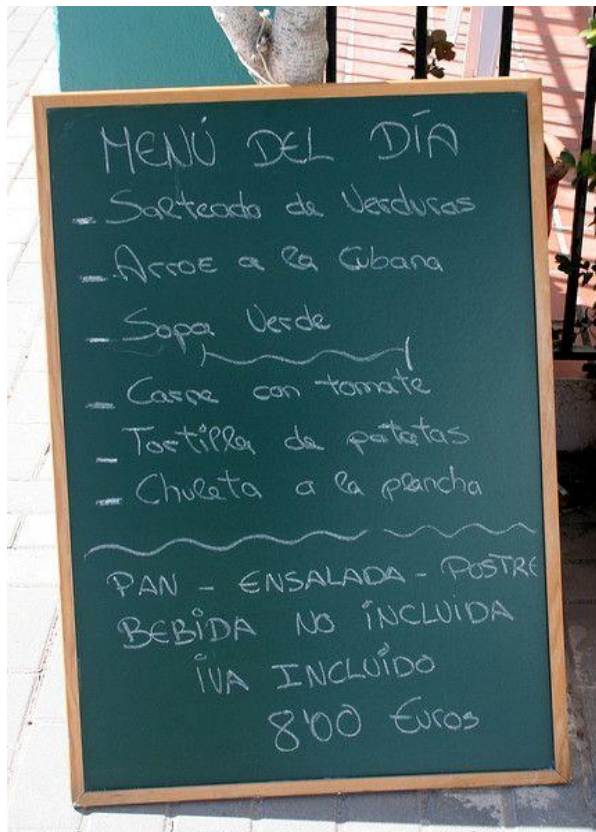 MENÚ DEL DÍA
- Salteado de Verduras
- Arroz a la Cubana
- Sopa Verde
- Carne con tomate
- Tortilla de patatas
- Chuleta a la plancha
PAN - ENSALADA - POSTRE
BEBIDA NO INCLUIDA
IVA INCLUÍDO
8'00 Euros